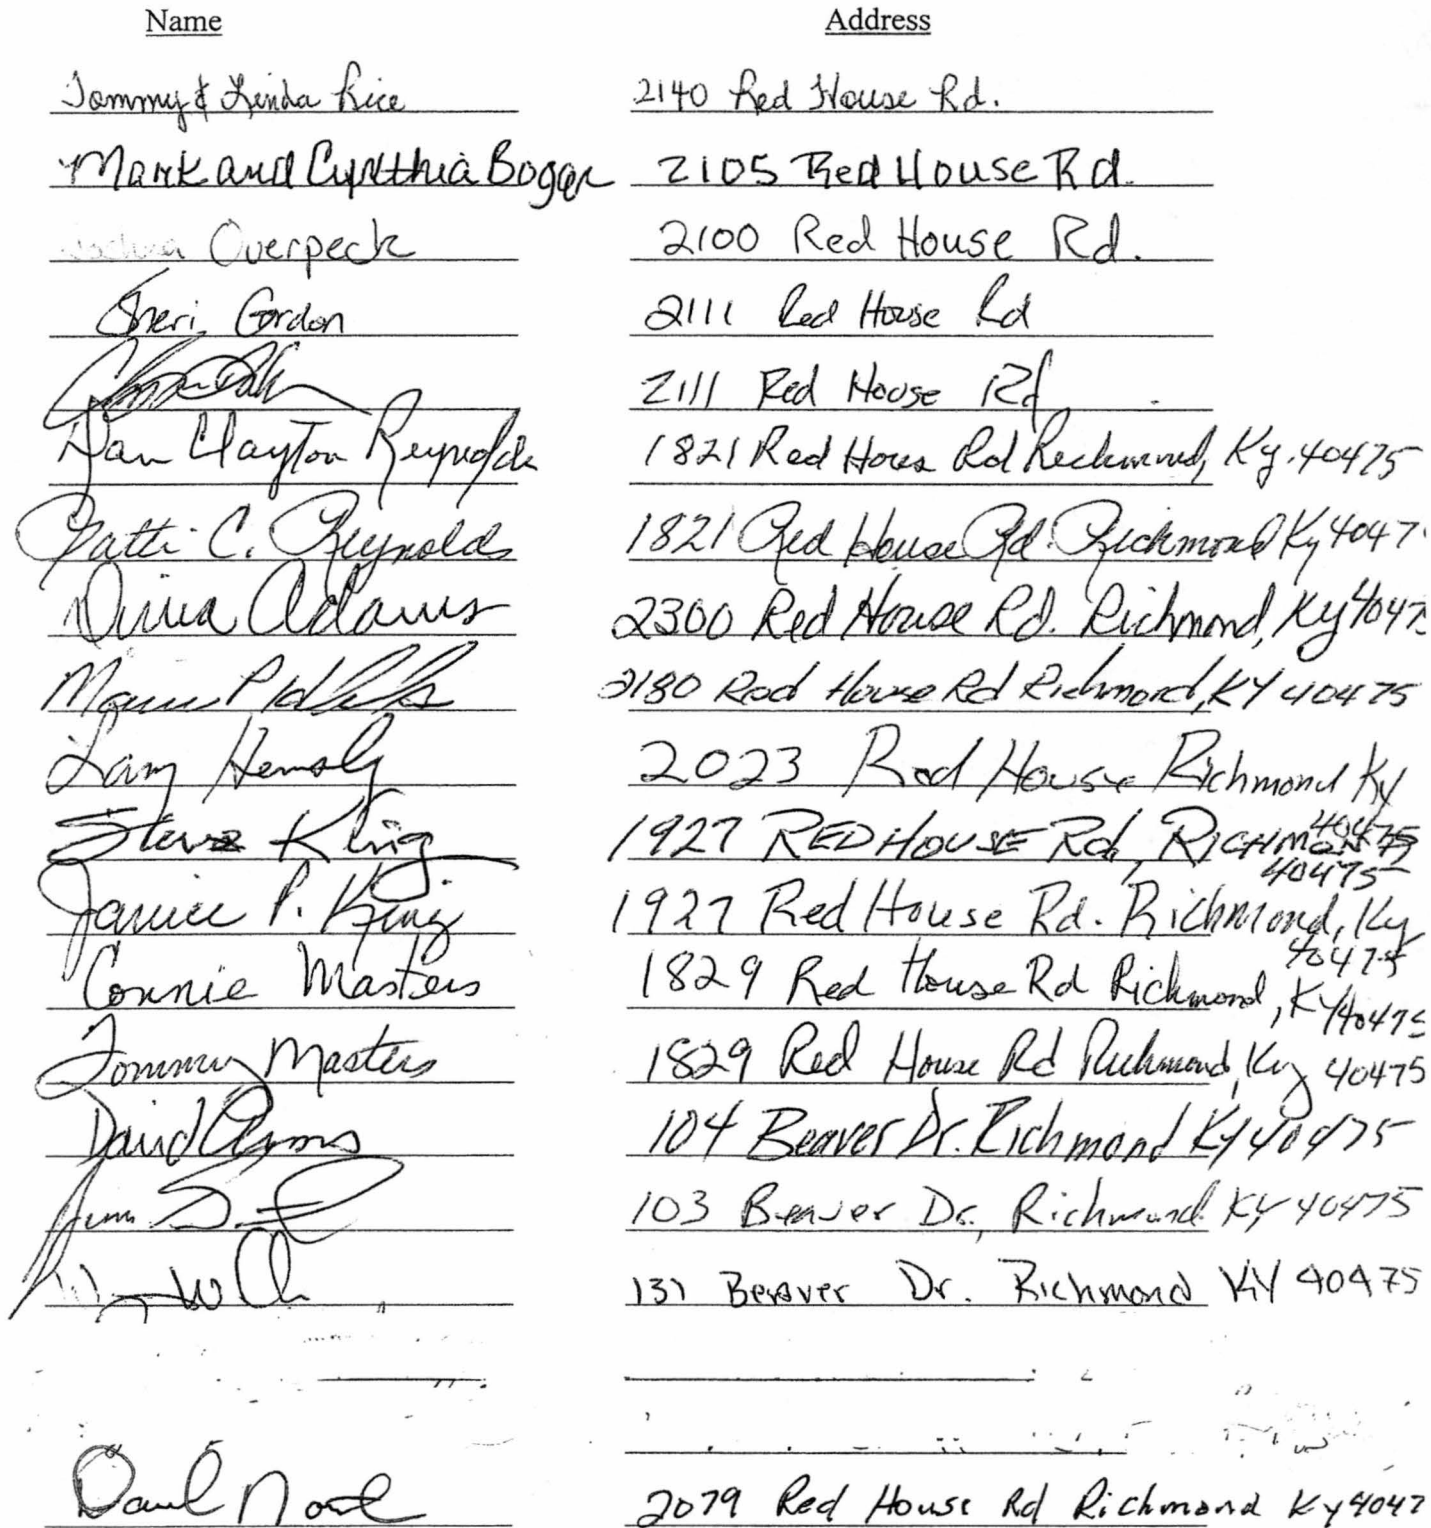 Name Address
Tommy & Linda Rice 2140 Red House Rd.
Mark and Cynthia Boggs 2105 Red House Rd.
Overpeck 2100 Red House Rd.
Sheri Gordon 2111 Red House Rd
2111 Red House Rd
Dan Clayton Reynolds 1821 Red House Rd Richmond, Ky. 40475
Patti C. Reynolds 1821 Red House Rd. Richmond Ky 4047
Adams 2300 Red House Rd. Richmond, Ky 4047
2180 Red House Rd Richmond, KY 40475
2023 Red House Richmond Ky
40475
Steve King 1927 RED HOUSE Rd, RICHMOND
40475
Janice P. King 1927 Red House Rd. Richmond, Ky
40475
Connie Masters 1829 Red House Rd Richmond, KY 40475
Tommy Masters 1829 Red House Rd Richmond, Ky 40475
David 104 Beaver Dr. Richmond KY 40475
Jim 103 Beaver Dr, Richmond KY 40475
131 Beaver Dr. Richmond KY 40475
2079 Red House Rd Richmond Ky 4047